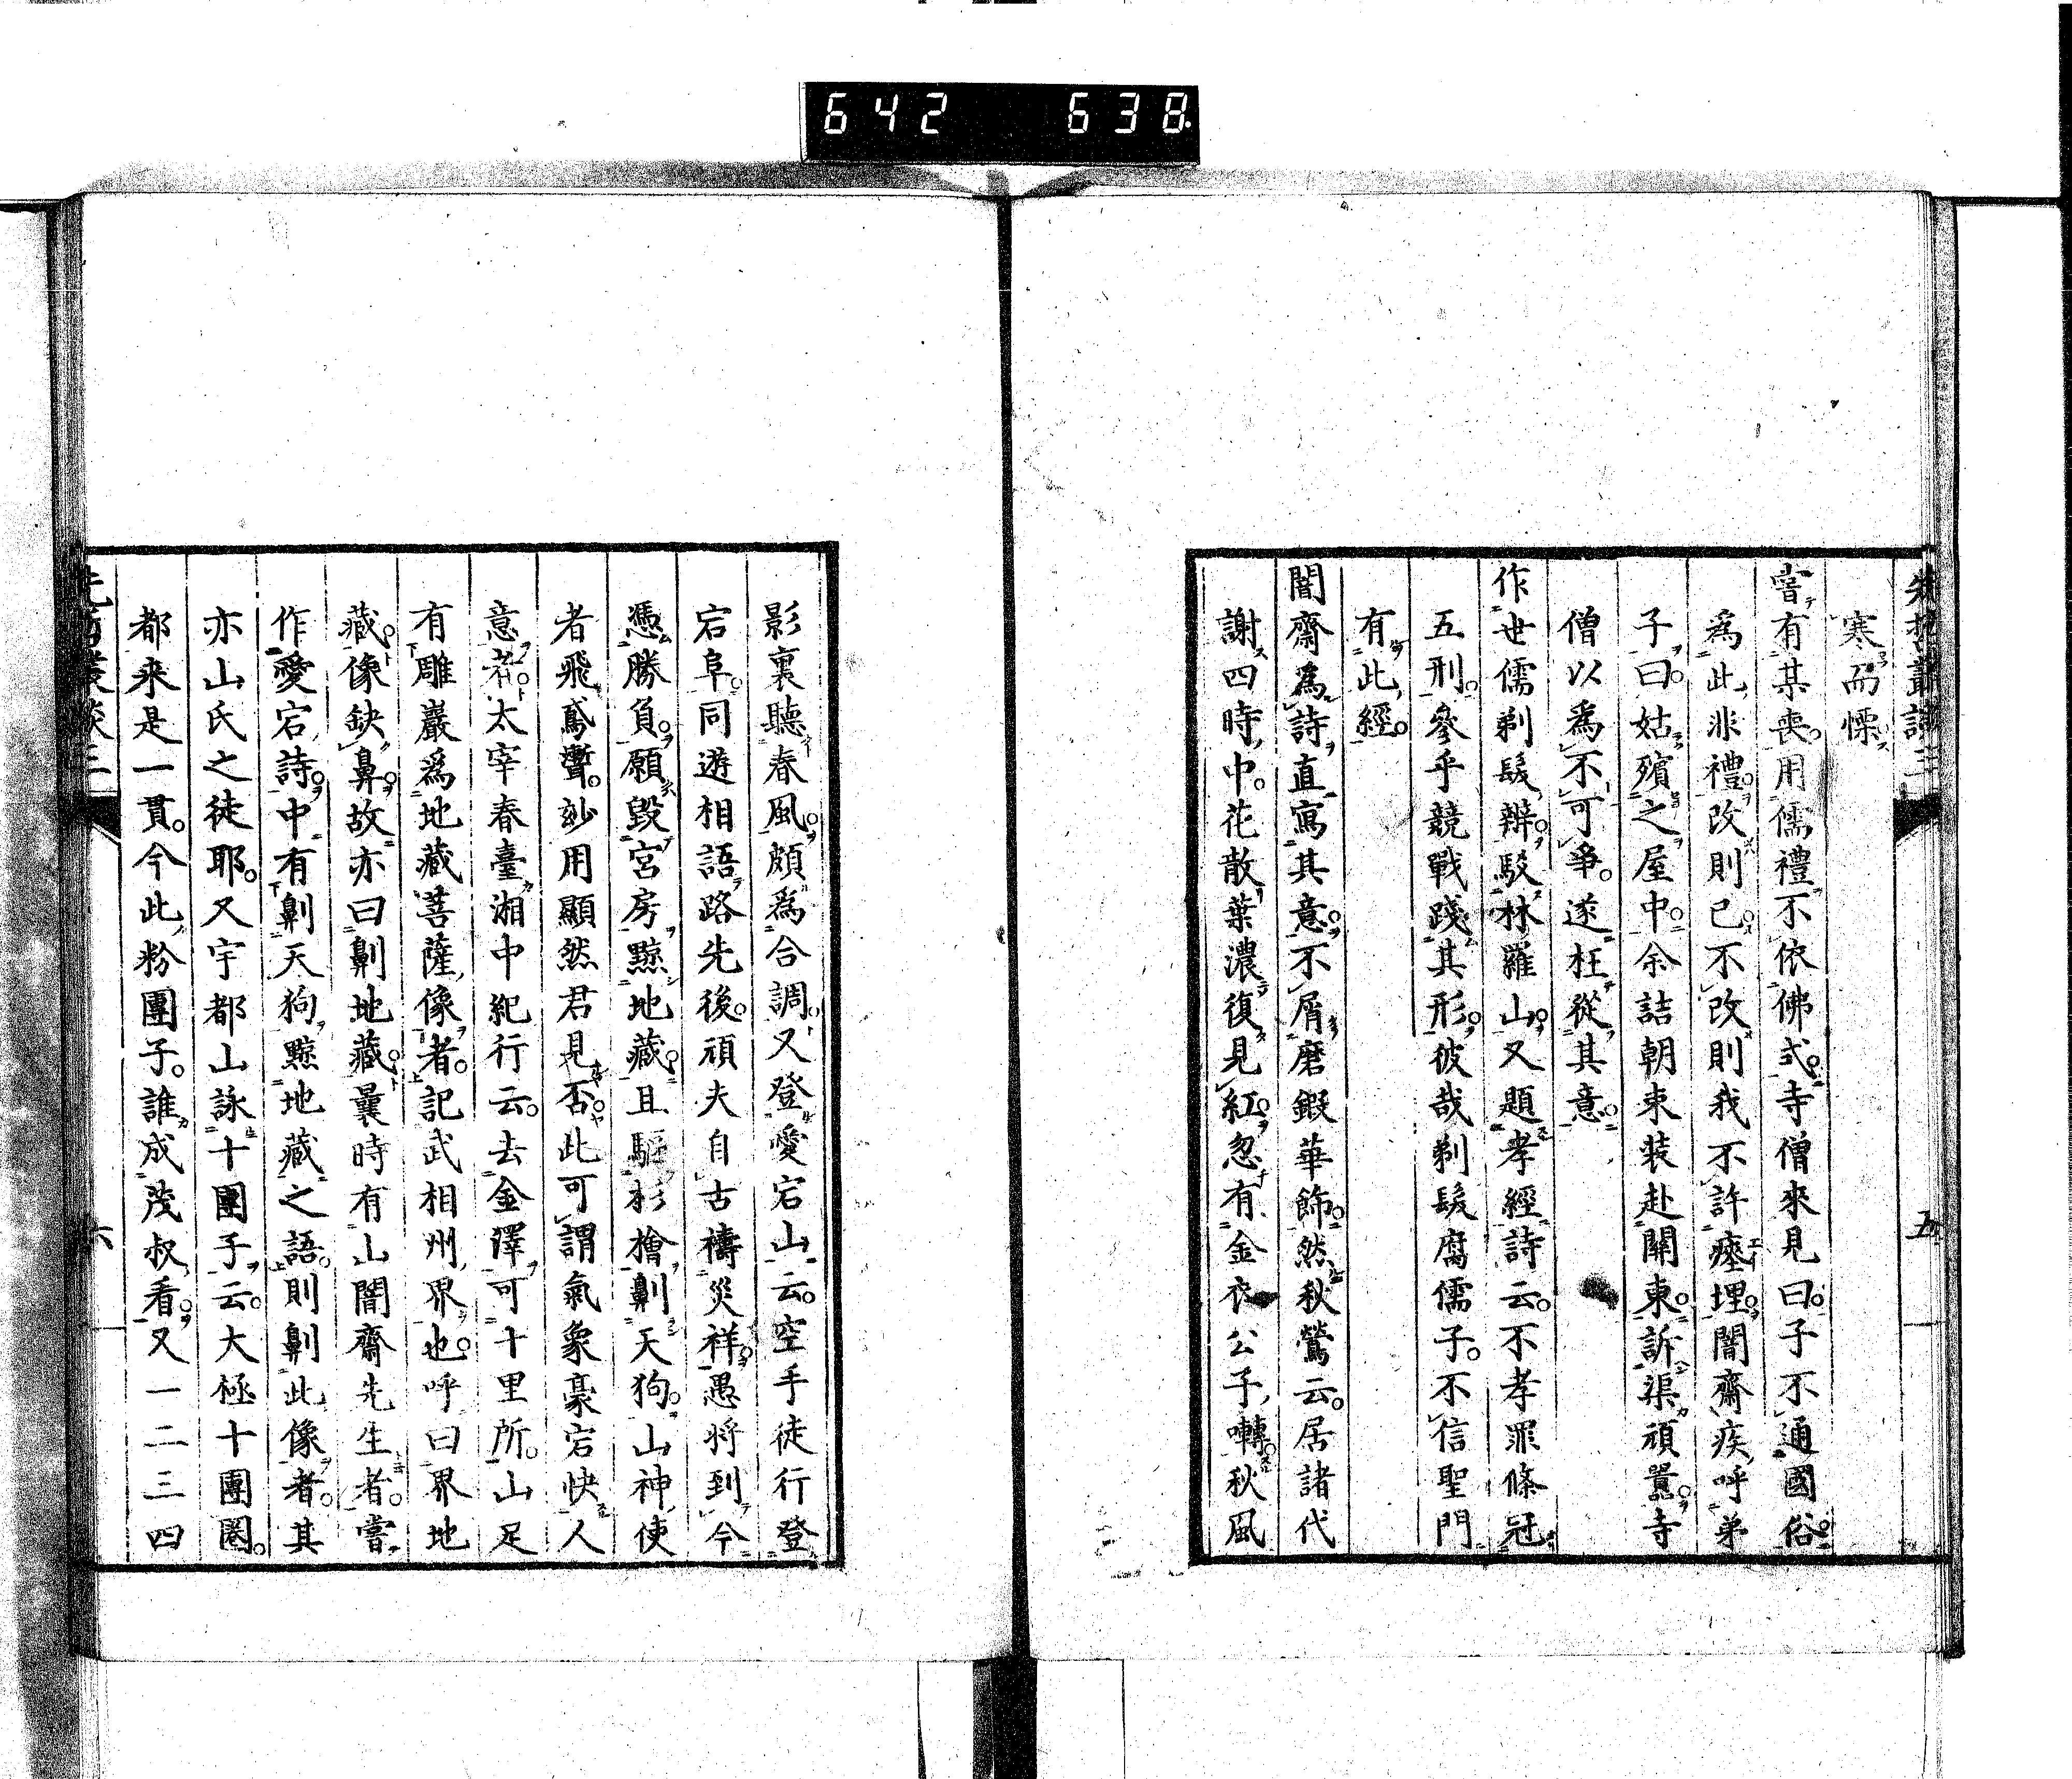 642 638
先哲叢談三 五
寒而慄
嘗有某喪。用儒禮不依佛式。寺僧來見曰。子不通國俗。
爲此非禮。改則已。不改則我不許瘞埋。闇齋疾呼弟
子曰。姑殯之屋中。余詰朝束裝赴關東。訴渠頑嚚。寺
僧以爲不可爭。遂枉從其意。
作世儒剃髮辯。駁林羅山。又題孝經詩云。不孝罪條冠
五刑。參乎競戰踐其形。彼哉剃髮腐儒子。不信聖門
有此經。
闇齋爲詩直寫其意。不屑磨鍛華飾。然秋鶯云。居諸代
謝四時中。花散葉濃復見紅。忽有金衣公子囀。秋風
影裏聽春風。頗爲合調。又登愛宕山云。空手徒行登
宕阜。同遊相語路先後。頑夫自古禱災祥。愚將到今
憑勝負。願毀宮房黥地藏。且驅杉檜劓天狗。山神使
者飛鳶聾。妙用顯然君見否。此可謂氣象豪宕快人
意者。太宰春臺湘中紀行云。去金澤可十里所。山足
有雕巖爲地藏菩薩像者。記武相州界也。呼曰界地
藏。像缺鼻。故亦曰劓地藏。曩時有山闇齋先生者。嘗
作愛宕詩。中有劓天狗黥地藏之語。則劓此像者。其
亦山氏之徒耶。又宇都山詠十團子云。大極十團圈。
都來是一貫。今此粉團子。誰成茂叔看。又一二三四
先哲叢談三 六